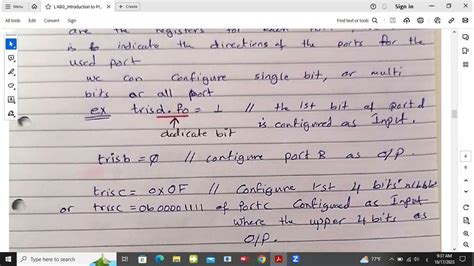 LAB2_Introduction to PI...
Sign in
Find text or tools
Share
are the registers for each
is to indicate the directions of the ports for the
used port
we can configure single bit, or multi
bits or all port
ex trisd.f0 = 1 // the 1st bit of portd
is configured as Input.
dedicate bit
trisb = 0 // configure port B as o/p.
trisc = 0x0F // Configure 1st 4 bits "nibble"
or trisc = 0b00001111 of portc configured as Input
where the upper 4 bits as
o/p.
Type here to search
77°F
9:37 AM
10/17/2023